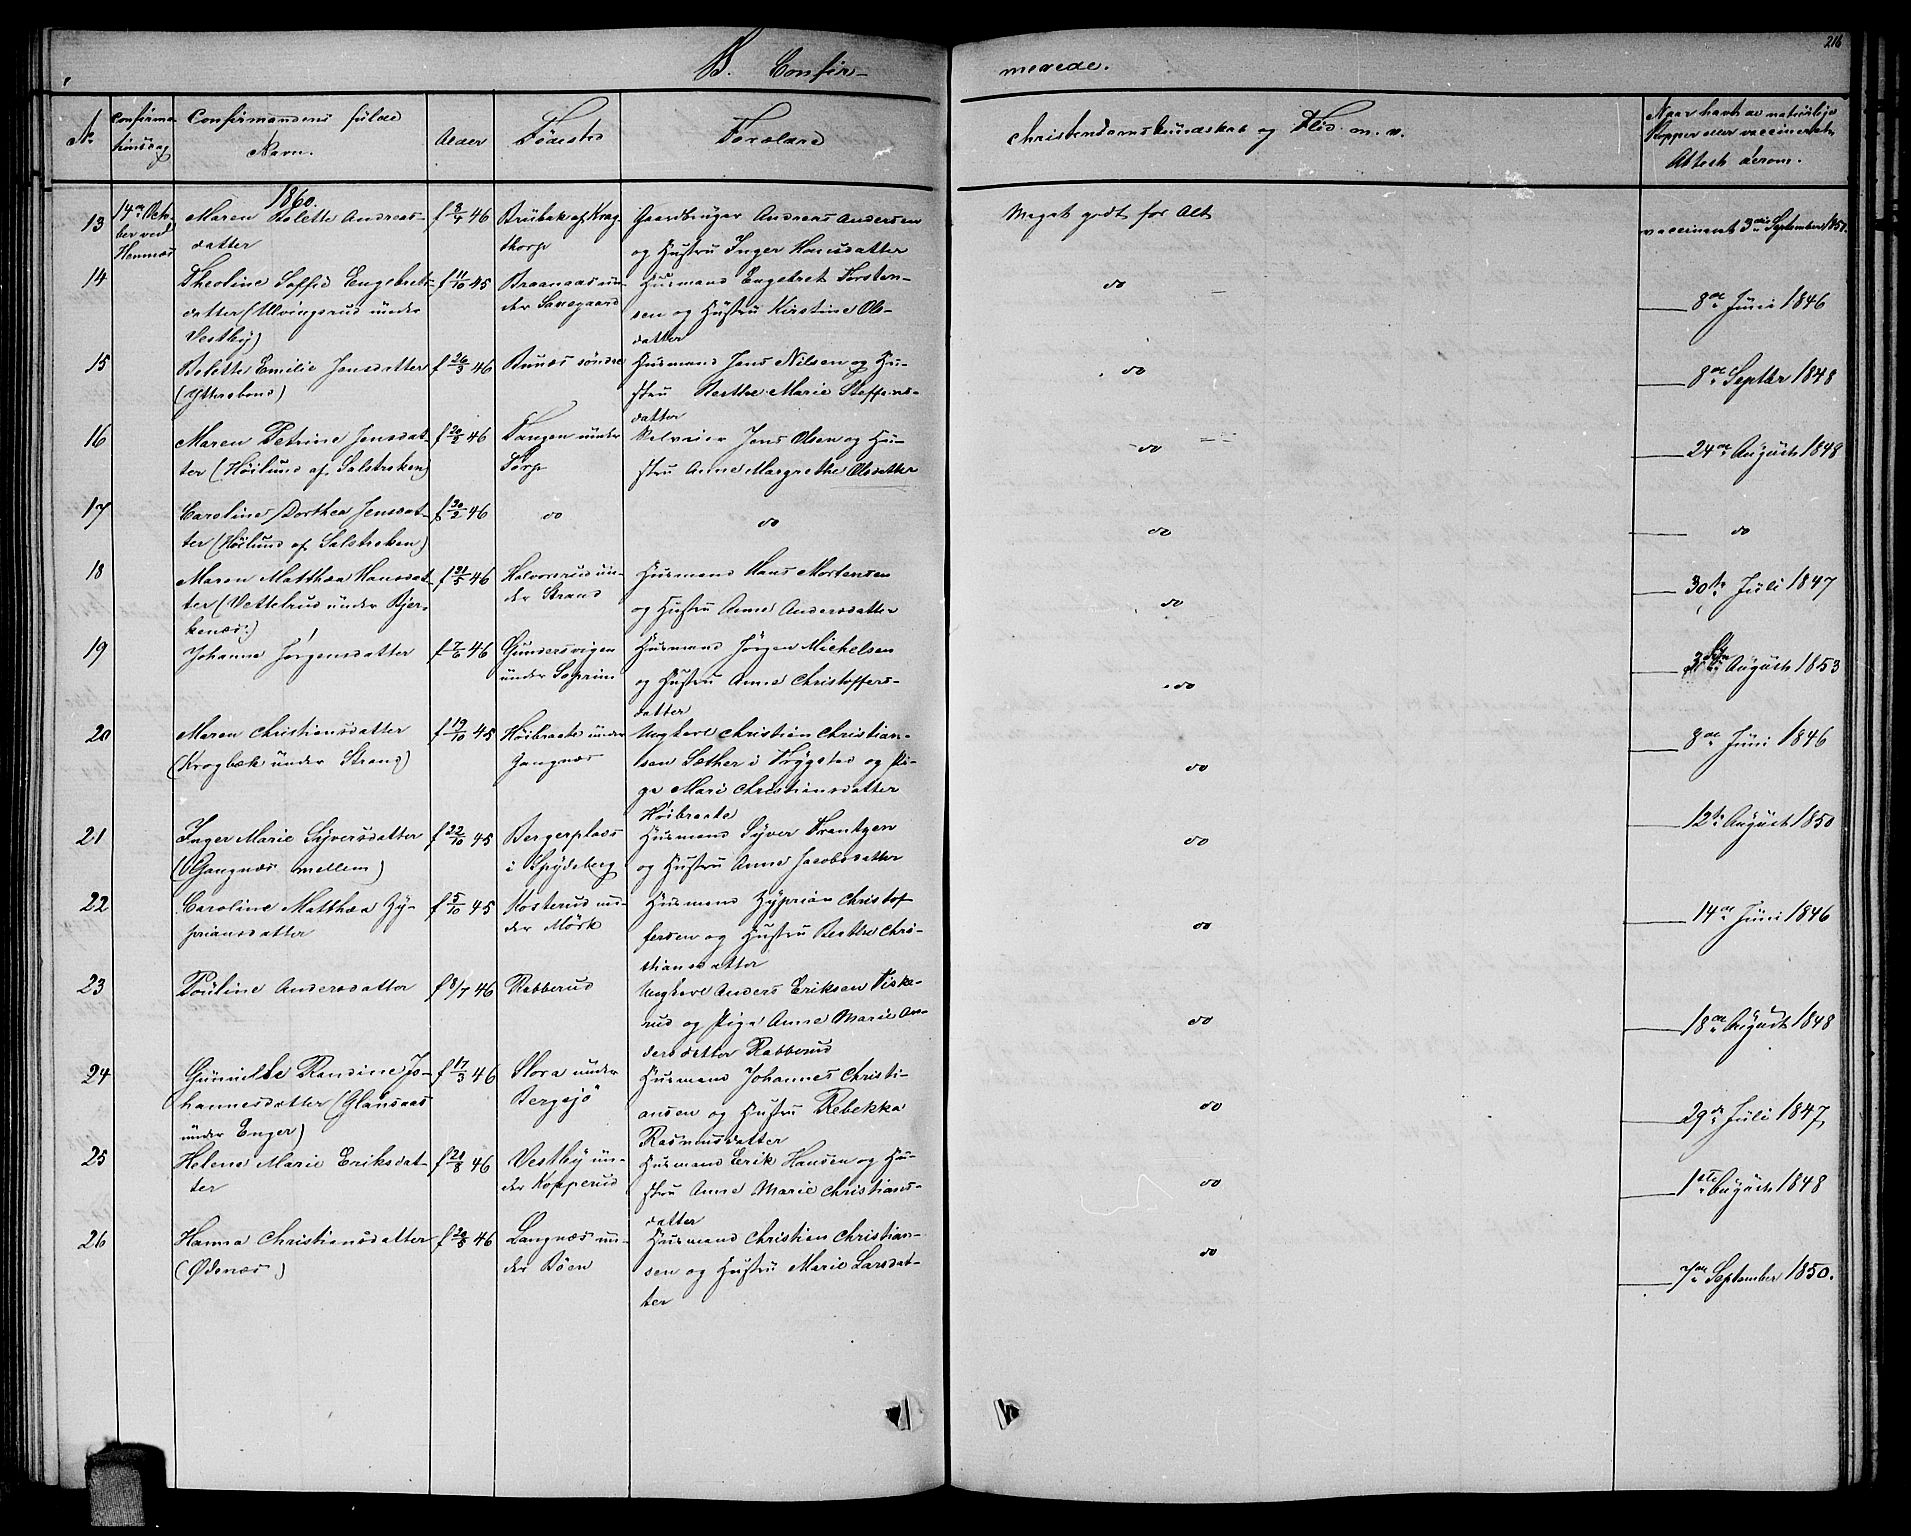 216
B. Confir-
merede.
No
Confirma-
tionsdag
Confirmandens fulde
Navn.
Alder
Fødested
Forældre
Christendomskundskab og Flid m. v.
Naar havt de naturlige
Kopper eller vaccineret
Attest derom.
1860.
13
14de Octo-
ber ved
Hemnæs
Maren Bolette Andreas-
datter
f 8/4 46
Brubak af Krog-
thorp
Gaardbruger Andreas Andersen
og Hustru Inger Hansdatter
Meget godt for Alt
vaccineret 3die September 1857.
14
Theoline Soffie Engebrets-
datter (Ulvingsrud under
Vestby)
f 11/10 45
Braanaas un-
der
Husmand Engebret Torsten-
sen og Hustru Kirstine Ols-
datter
do
8de Juni 1846
15
Bolette Emilie Jensdatter
(Yttersbond)
f 26/3 46
Bunæs søndre
Husmand Jens Nilsen og Hu-
stru Berthe Marie Steffens-
datter
do
8de Septbr 1848
16
Maren Petrine Jensdat-
ter (Høilund af Salstreken)
f 20/3 46
Tangen under
Torp
Selveier Jens Olsen og Hu-
stru Anne Margrethe Olsdatter
do
24de August 1848
17
Caroline Dorthea Jensdat-
ter (Høilund af Salstreken)
f 20/3 46
do
do
do
do
18
Maren Matthæa Hansdat-
ter (Vettelrud under Bjer-
kenæs)
f 31/5 46
Halvorsrud un-
der Strand
Husmand Hans Mortensen
og Hustru Anne Andersdatter
do
30te Juli 1847
19
Johanne Jørgensdatter
f 7/6 46
Gundersvigen
under Soprim
Husmand Jørgen Michelsen
og Hustru Anne Christoffers-
datter
do
August 1853
20
Maren Christiansdatter
(Krogbæk under Strand)
f 19/10 45
Høibraate under
Gangnæs
Ungkarl Christian Christian-
sen Sæther i Trygstad og Pi-
ge Mari Christiansdatter
Høibraate
do
8de Juni 1846
21
Inger Marie Syversdatter
(Gangnæs mellem)
f 22/10 45
Bergerplads
i Spydeberg
Husmand Syver Frantzen
og Hustru Anne Jacobsdatter
do
12te August 1850
22
Caroline Matthæa Zy-
priansdatter
f 5/10 45
Kosterud un-
der Mørk
Husmand Zyprian Christof
fersen og Hustru Berthe Chri-
stiansdatter
do
14de Juni 1846
23
Pouline Andersdatter
f 8/7 46
Rabberud
Ungkarl Anders Eriksen Viske-
rud og Pige Anne Marie An-
dersdatter Rabberud
do
18de August 1848
24
Gunnilde Randine Jo-
hannesdatter (Glansaas
under Enger)
f 17/3 46
Slora under
Bergsjö
Husmand Johannes Christi-
ansen og Hustru Rebekka
Rasmusdatter
do
29de Juli 1847
25
Helene Marie Eriksdat-
ter
f 21/8 46
Vestby un-
der Kopperud
Husmand Erik Hansen og Hu-
stru Anne Marie Christians-
datter
do
1ste August 1848
26
Hanna Christiansdatter
(Ødenæs)
f 20/8 46
Langnæs un-
der Böen
Husmand Christian Christian-
sen og Hustru Marie Larsdat-
ter
do
7de September 1850.